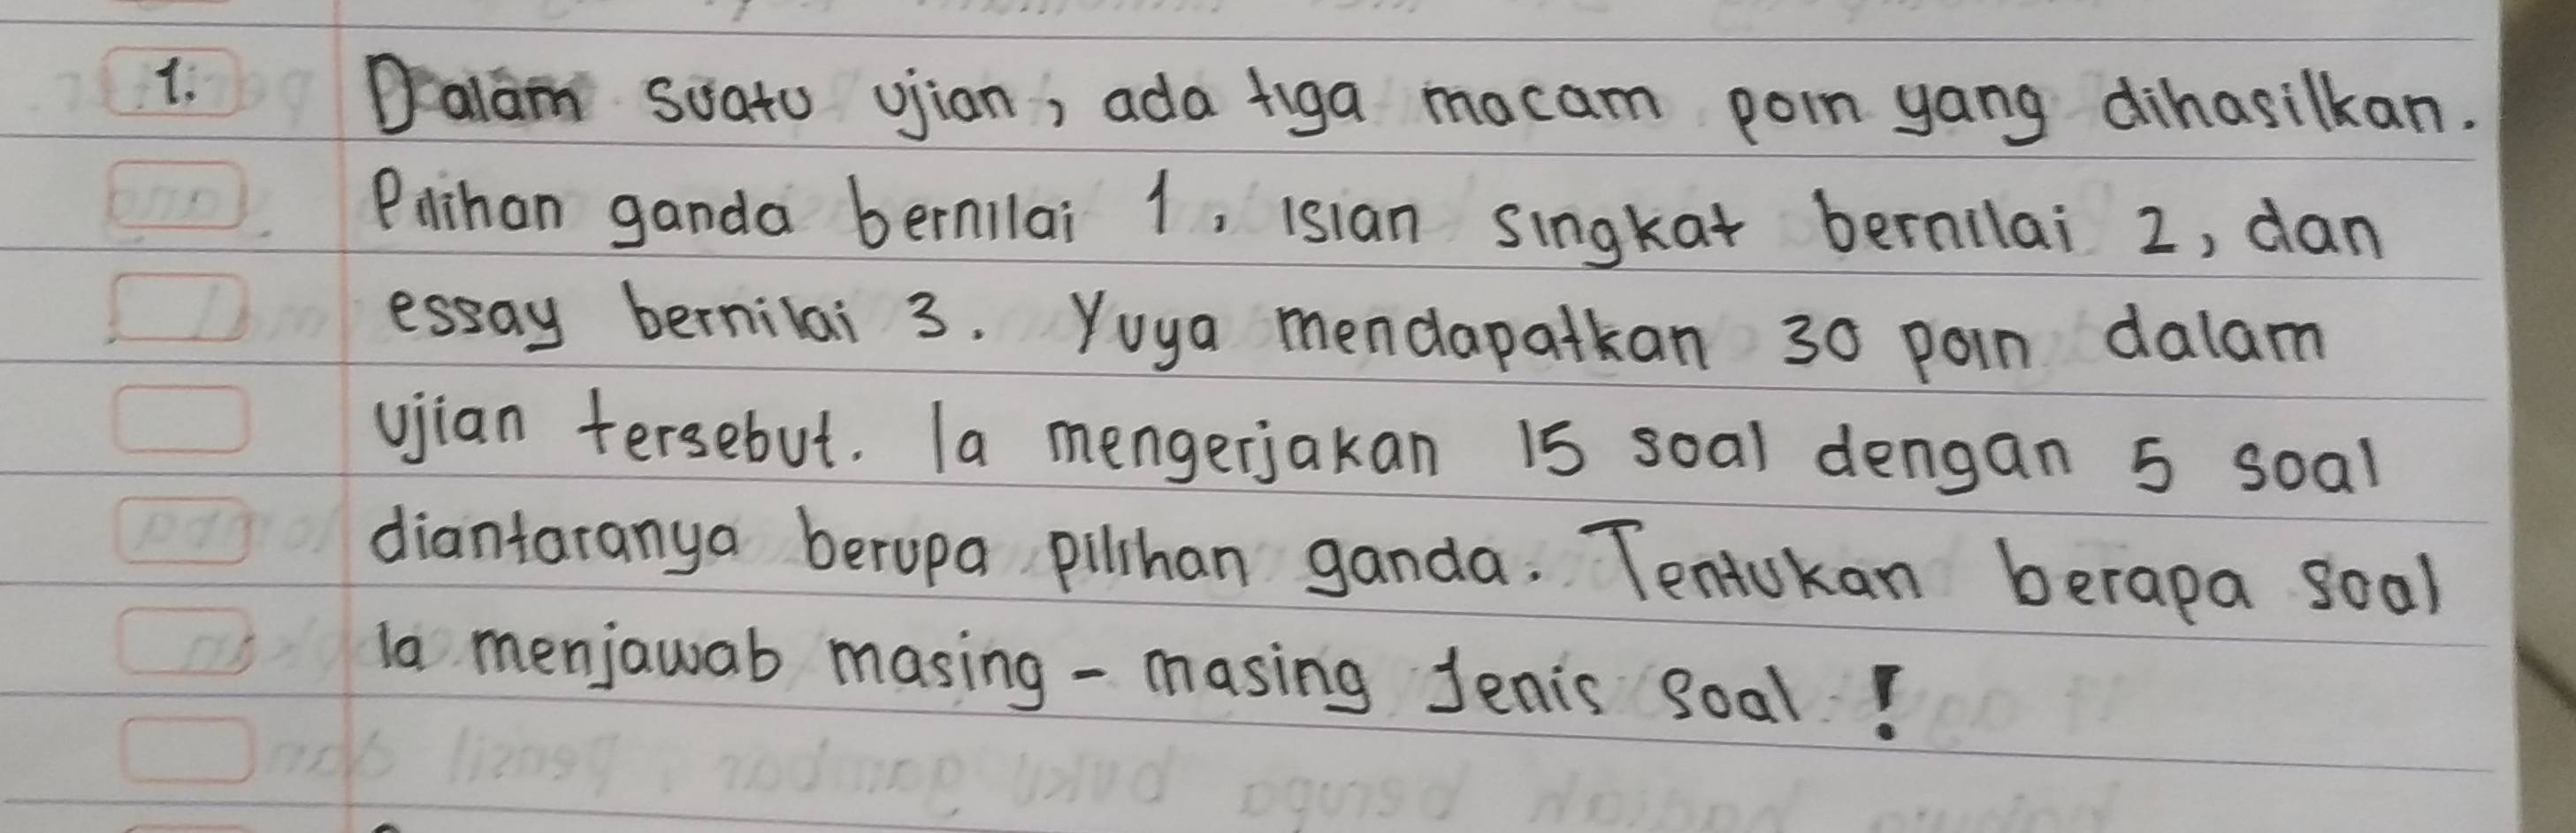 1. Dalam suatu ujian, ada tiga macam poin yang dihasilkan.
Pilihan ganda bernilai 1, isian singkat bernilai 2, dan
essay bernilai 3. Yuya mendapatkan 30 poin dalam
ujian tersebut. Ia mengerjakan 15 soal dengan 5 soal
diantaranya berupa pilihan ganda. Tentukan berapa soal
Ia menjawab masing - masing Jenis soal !